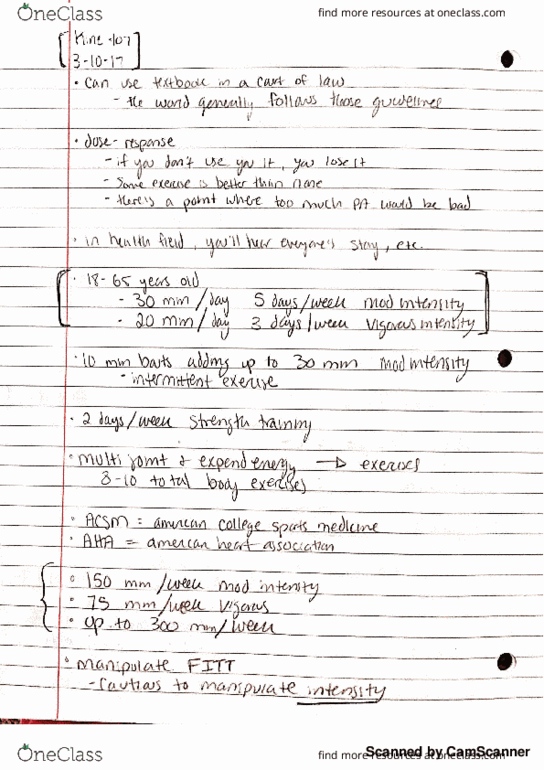 OneClass
find more resources at oneclass.com
Kine 107
3-10-17
• Can use textbook in a court of law
- the word generally follows those guidelines
• dose-response
- if you don't use you it, you lose it
- Some exercise is better than none
- there's a point where too much PA would be bad
• in health field, you'll hear everyone's stay, etc.
• 18-65 years old
- 30 min/day 5 days/week mod intensity
- 20 min/day 3 days/week vigorous intensity
• 10 min bouts adding up to 30 min mod intensity
- intermittent exercise
• 2 days/week strength training
• multi joint & expend energy → exercises
8-10 total body exercises
• ACSM = american college sports medicine
• AHA = american heart association
• 150 min/week mod intensity
• 75 min/week vigorous
• up to 300 min/week
• manipulate FITT
- Cautious to manipulate intensity
OneClass
find more resources at oneclass.com
Scanned by CamScanner